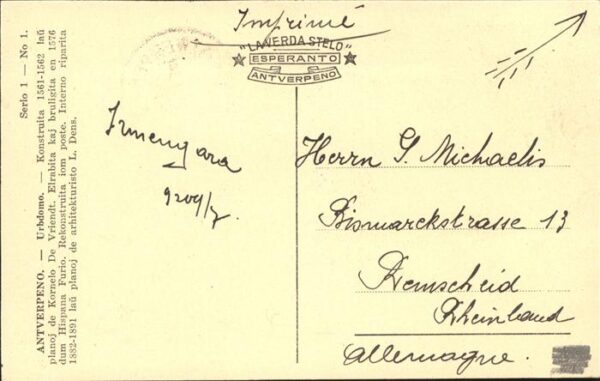 Imprimé
"LA VERDA STELO"
ESPERANTO
ANTVERPENO
Serio 1 — No 1.
ANTVERPENO. — Urbdomo. — Konstruita 1561-1562 laŭ
planoj de Kornelo De Vriendt. Elrabita kaj bruligita en 1576
dum Hispana Furio. Rekonstruita iom poste. Interno riparita
1882-1891 laŭ planoj de arhitekturisto L. Dens.
Irmengara
Herrn G. Michaelis
Bismarckstrasse 13
Remscheid
Rheinland
Allemagne.